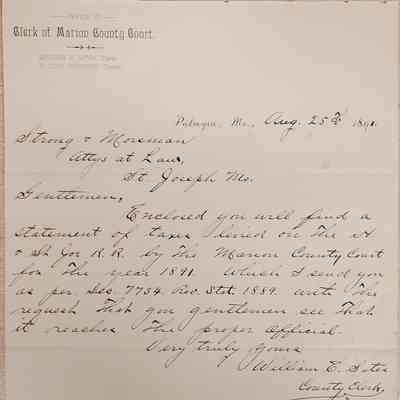 OFFICE OF
Clerk of Marion County Court.
Palmyra, Mo., Aug. 25th 1891.
Strong & Mosman
Attys at Law,
St. Joseph Mo.
Gentlemen,
Enclosed you will find a
statement of taxes levied on The H
& St Joe R.R. by The Marion County Court
for The year 1891. Which I send you
as per Sec. 7734. Rev. Stat. 1889. with The
request That you gentlemen see That
it reaches The proper Official.
Very truly yours
William C.
County Clerk,